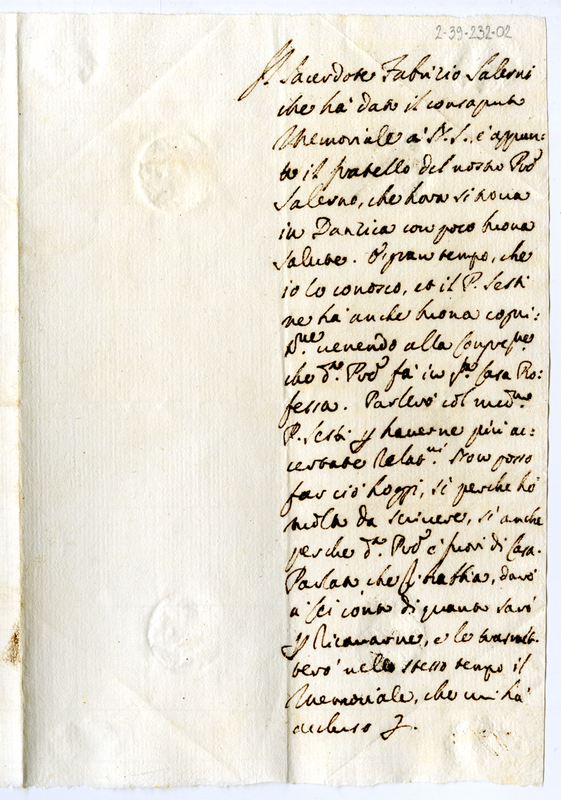 2-39-232-02
Il Sacerdote Fabrizio Salerni
che há dato il consaputo
Memoriale á N. S., é appun:
to il fratello del nostro Pre
Salerno, che hora si troua
in Danzica con poco buona
salute. É gran tempo, che
io lo conosco, et il P. Sesti
ne há anche buona cogni:
ne uenendo alla Congregne
che do. Pre fá in qta. Casa Pro:
fessa. Parleró col medmo.
P. Sesti p hauerne piú ac:
certate Relatni. Non posso
far ció hoggi, sí perche hó
molto da scriuere, sí anche
perche do. Pre é fuori di Casa.
Parlato che si habbia, daró
a lei conto di quanto saró
p Ricauarne, e le trasmet:
teró nello stesso tempo il
Memoriale, che mi há
accluso